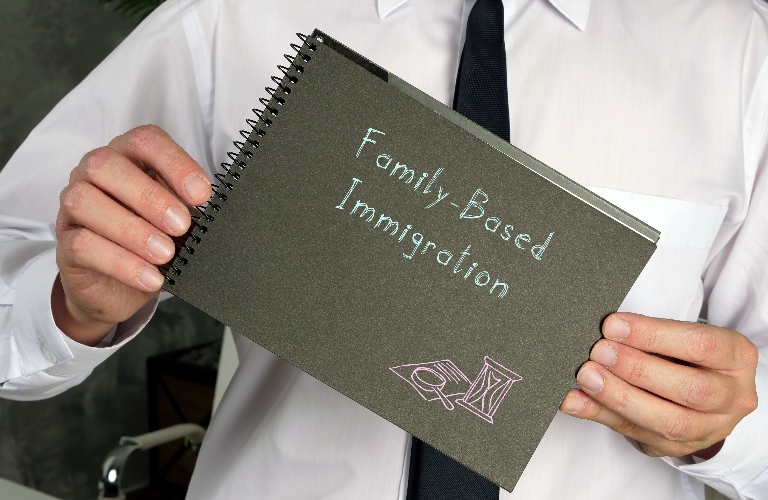 Family-Based
Immigration